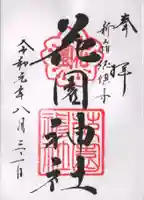 奉拝
新宿総鎮守
花園神社
令和元年八月三十一日